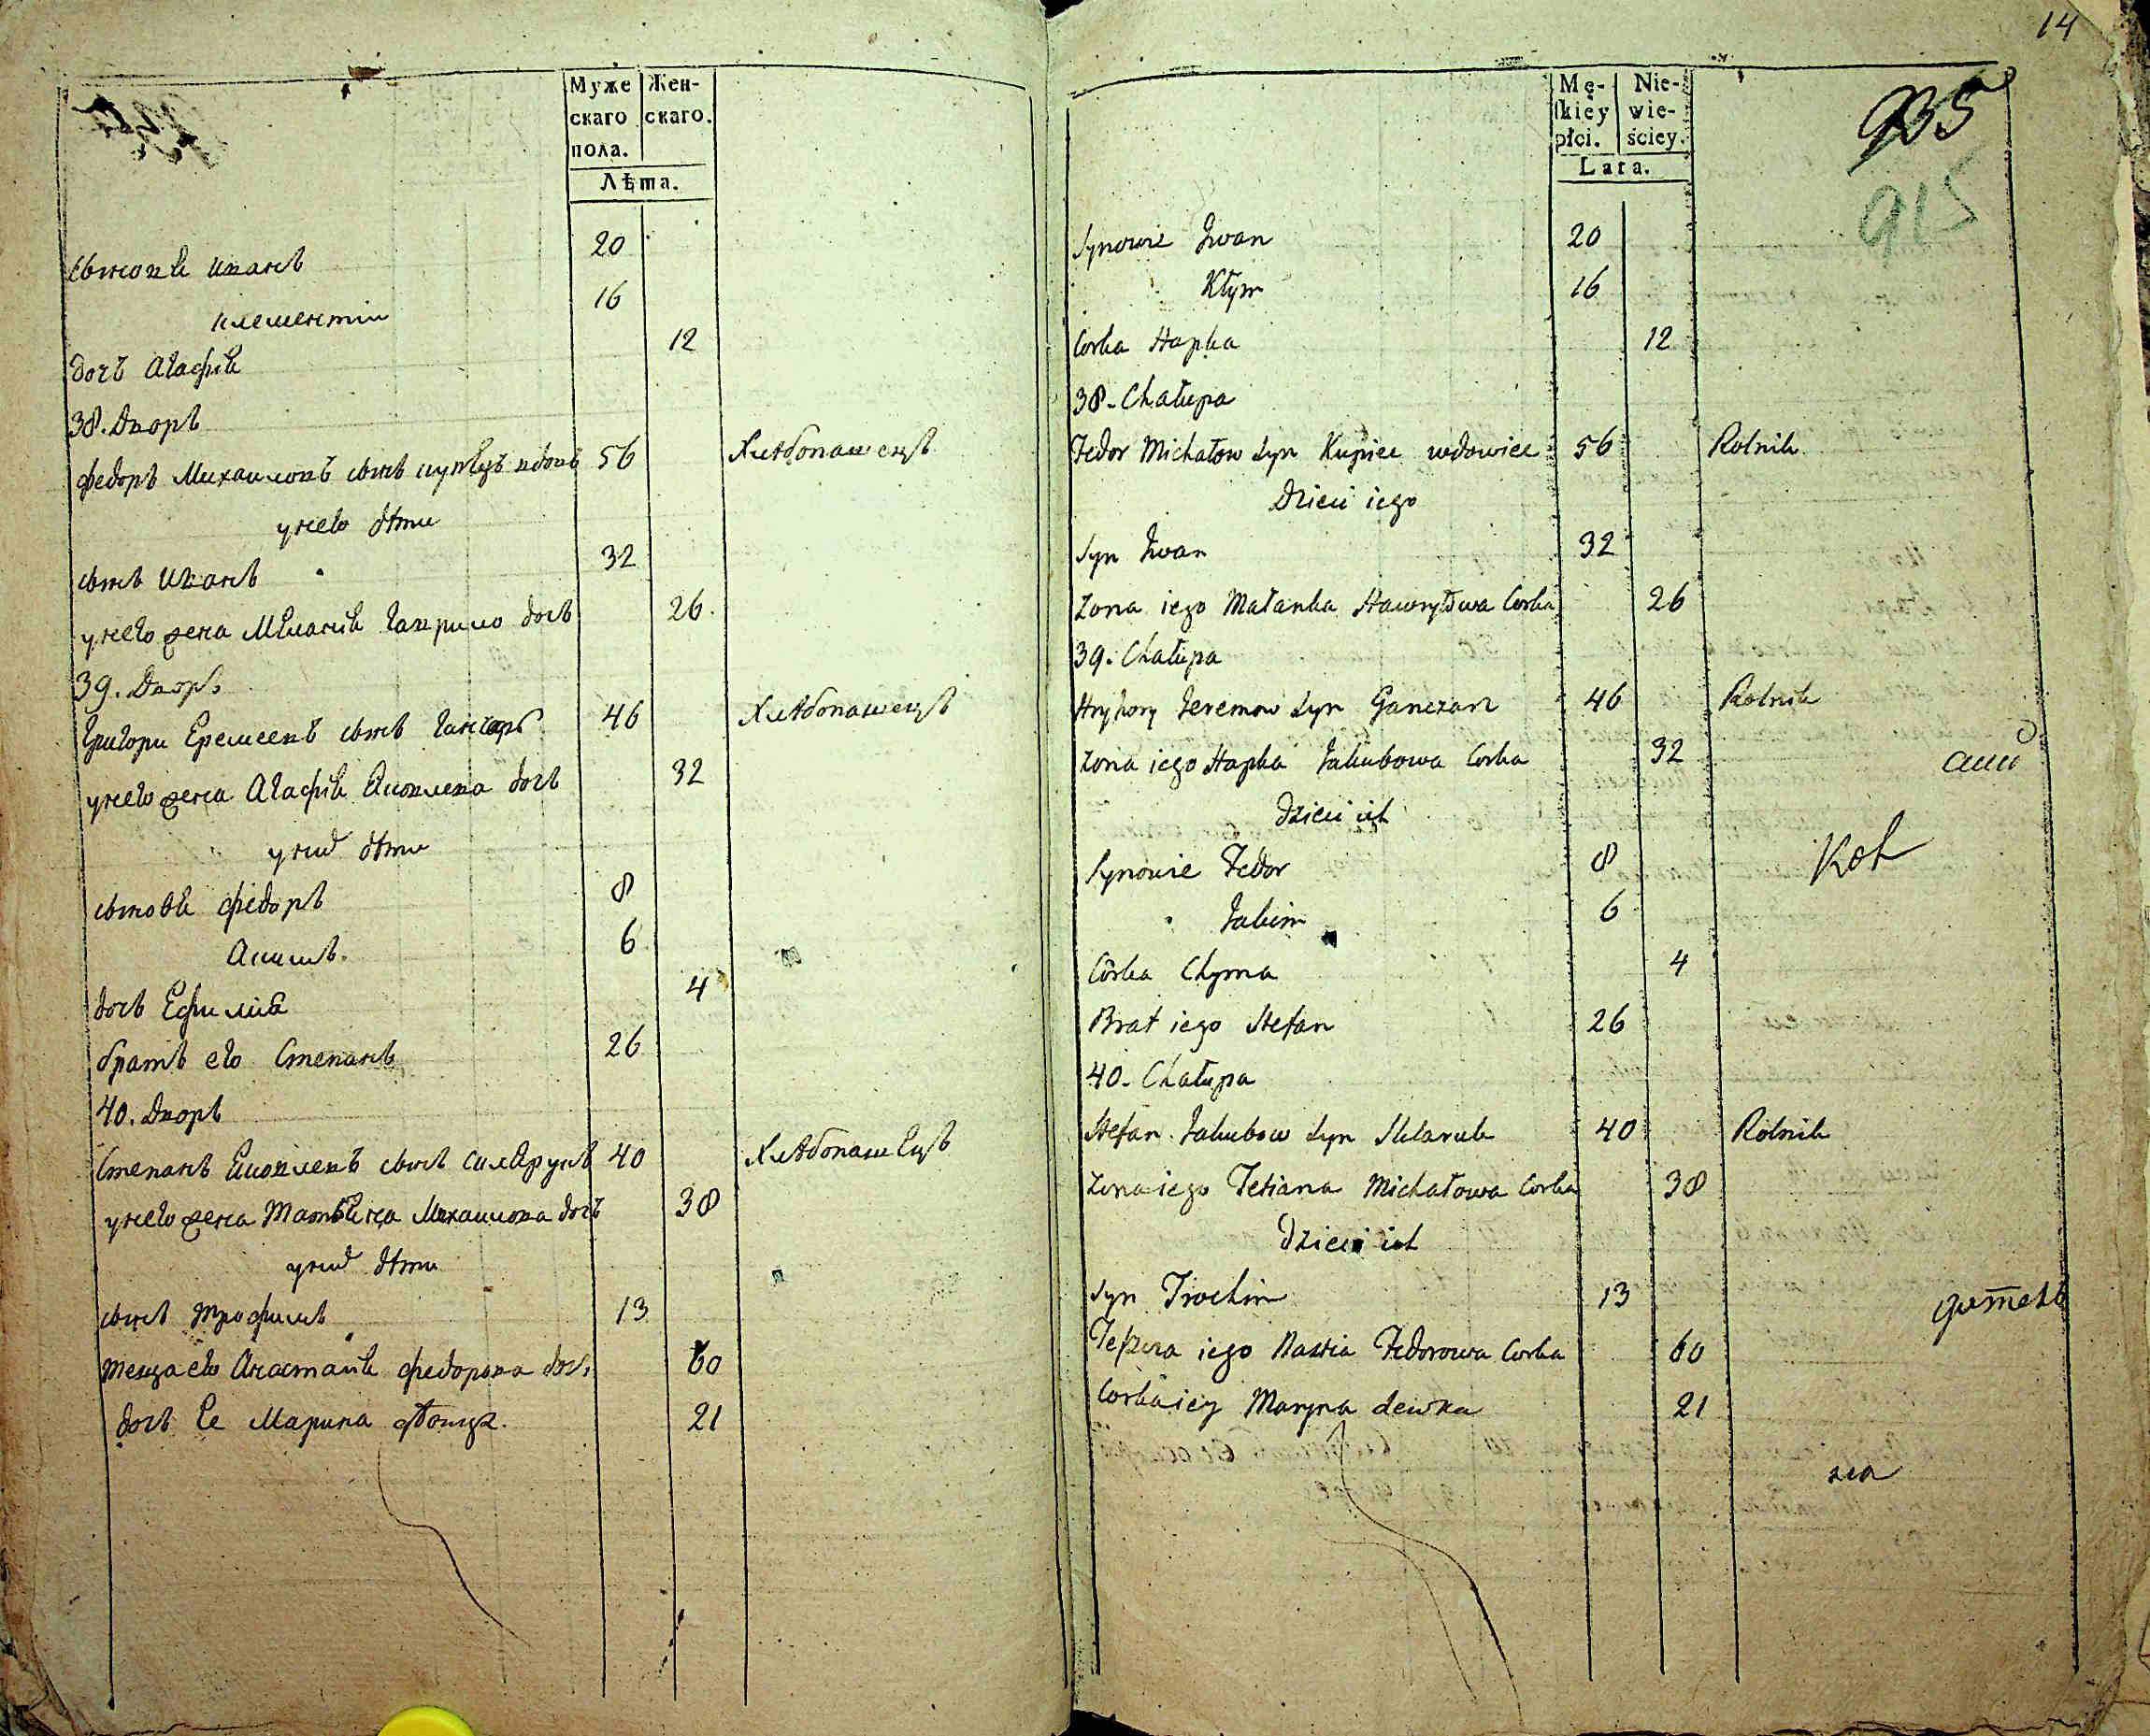 Муже Жен-
скаго скаго.
пола.
Лѣта.
сынове иванъ 20
климентии 16
дочъ Агафия 12
38. Дворъ
Федоръ Михаиловъ сынъ купецъ вдовъ 56 Хлѣбопашецъ
унего дѣти
сынъ Иванъ 32
унего жена Мелания Гаврило дочъ 26.
39. Дворъ
Григори Еремеевъ сынъ Ганчаръ 46 Хлѣбопашецъ
унего жена Агафия Яковлева дочъ 32
уних дѣти
сынове Федоръ 8
Акимъ. 6
дочъ Ефимия 4
братъ его Степанъ 26
40. Дворъ
Степанъ Яковлевъ сынъ Склярукъ 40 Хлѣбопашецъ
унего жена Татьяна Михаилова дочъ 38
уних дѣти
сынъ Трофимъ 13
теща его Анастасия Федорова дочъ 60
дочъ Ее Марина 21
14
Mę- Nie-
skiey wie-
płci. ściey.
Lata.
935
915
Synowie Iwan 20
Kłym 16
Corka Hapka 12
38. Chałupa
Fedor Michałow Syn Kupiec wdowiec 56 Rolnik
Dzieci iego
Syn Iwan 32
Zona iego Małanka Hawryłowa Corka 26
39. Chałupa
Hryhory Jeremow Syn Ganczarz 46 Rolnik
Zona iego Hapka Jakubowa Corka 32
Dzieci ich
Synowie Fedor 8
Jakim 6
Córka Chyma 4
Brat iego Stefan 26
40. Chałupa
Stefan Jakubow Syn Sklaruk 40 Rolnik
Zona iego Tetiana Michałowa Corka 38
Dzieci ich
Syn Trochim 13
Teszcza iego Nastia Fedorowa Corka 60
Corka iey Maryna dewka 21